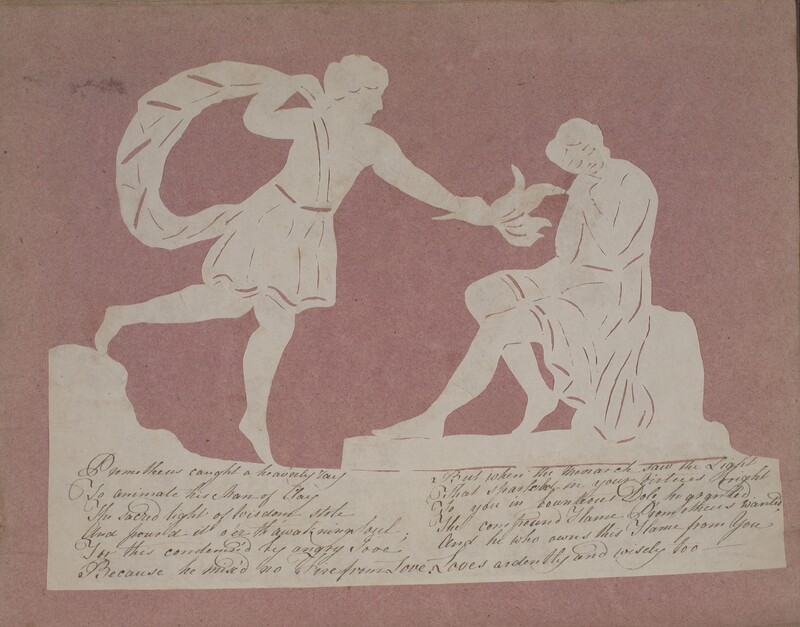 Prometheus caught a heavenly ray
To animate his Man of Clay
The sacred light of Wisdom stole
And pour'd it o'er th' awak'ning soul;
For this condemn'd by angry Jove
Because he mix'd no Fire from Love.
But when the Monarch saw the Light
That sparkled in your Virtues bright
To you in bounteous Dole he granted
The compound Flame Prometheus wanted,
And he who owns this Flame from You
Loves ardently and wisely too